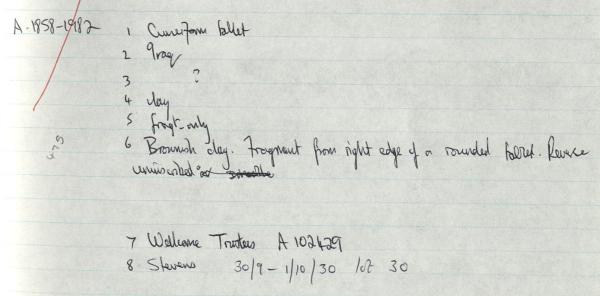 A. 1858-1982 1 Cuneiform tablet
2 Iraq
3 ?
4 clay
5 fragt. only
6 Brownish clay. Fragment from right edge of a rounded tablet. Reverse
uninscribed
7 Wellcome Trustees A 102429
8 Stevens 30/9 - 1/10/30 lot 30